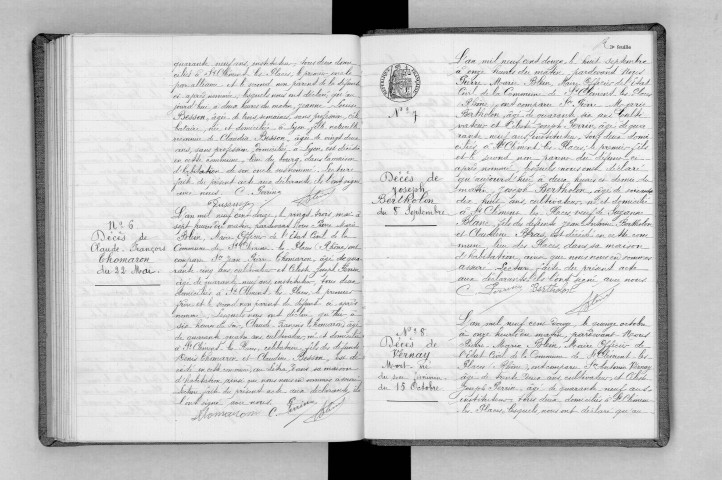 quarante neuf ans, instituteur, tous deux domi-
ciliés à St Clément les Places, le premier oncle
par alliance et le second non parent de la défunte
ci après nommée, lesquels nous ont déclaré qu'au-
jourd'hui à deux heures du matin, Jeanne Louise
Besson, âgée de trois semaines, sans profession, céli-
bataire, née et domiciliée à Lyon, fille naturelle
reconnue de Claudia Besson, âgée de vingt deux
ans, sans profession, domiciliée à Lyon, est décédée
en cette commune, lieu du bourg, dans la maison
d'habitation de son oncle susnommé. Lecture
faite du présent acte aux déclarants ils l'ont signé
avec nous. C. Perrin
N° 6
Décès de
Claude-François
Thomaron
du 22 Mai.
L'an mil neuf cent douze, le vingt trois mai à
sept heures du matin, pardevant Nous Pierre Marie
Blein, Maire, Officier de l'Etat Civil de la
Commune de St Clément les Places, Rhône, ont
comparu Srs Jean Pierre Thomaron, âgé de qua-
rante cinq ans, cultivateur et Célest Joseph Perrin
âgé de quarante neuf ans, instituteur, tous deux
domiciliés à St Clément les Places, le premier
frère et le second non parent du défunt ci après
nommé, lesquels nous ont déclaré qu'hier à
six heures du soir, Claude François Thomaron, âgé
de quarante ans, cultivateur, né et domicilié
à St Clément les Places, célibataire, fils des défunts
Thomaron et Claudine Besson, est dé-
cédé en cette commune, dans sa maison
d'habitation, ainsi que nous nous en sommes assuré.
Lecture faite du présent acte aux déclarants ils
l'ont signé avec nous.
Thomaron C. Perrin
2e feuille
N° 7
Décès de
Joseph
Bertholon
du 8 Septembre
L'an mil neuf cent douze, le huit septembre
à onze heures du matin, pardevant Nous
Pierre Marie Blein, Maire, Officier de l'Etat
Civil de la Commune de St Clément les Places
Rhône, ont comparu Srs Jean Marie
Bertholon, âgé de quarante six ans, culti-
vateur et Célest Joseph Perrin, âgé de qua-
rante neuf ans, instituteur, tous deux domi-
ciliés à St Clément les Places, le premier fils
et le second non parent du défunt ci-
après nommé, lesquels nous ont déclaré
qu'aujourd'hui à deux heures du
matin, Joseph Bertholon, âgé de soixante
dix huit ans, cultivateur, né et domicilié
à St Clément les Places, veuf de Suzanne
Blanc, fils de défunts Jean Antoine Bertholon
et Claudine, est décédé en cette com-
mune, lieu des Places, dans sa maison
d'habitation, ainsi que nous nous en sommes
assuré. Lecture faite du présent acte
aux déclarants, ils l'ont signé avec nous.
C. Perrin Bertholon
N° 8
Décès de
Vernay
Mort-né
du sexe féminin
du 15 Octobre
L'an mil neuf cent douze, le quinze octobre
à onze heures du matin, pardevant Nous
Pierre Marie Blein, Maire, Officier de
l'Etat Civil de la Commune de St Clément les
Places, Rhône, ont comparu Srs Antoine Vernay
âgé de trente trois ans, cultivateur et Célest
Joseph Perrin, âgé de quarante neuf ans
instituteur, tous deux domiciliés à St Clément
les Places, lesquels nous ont déclaré qu'au-